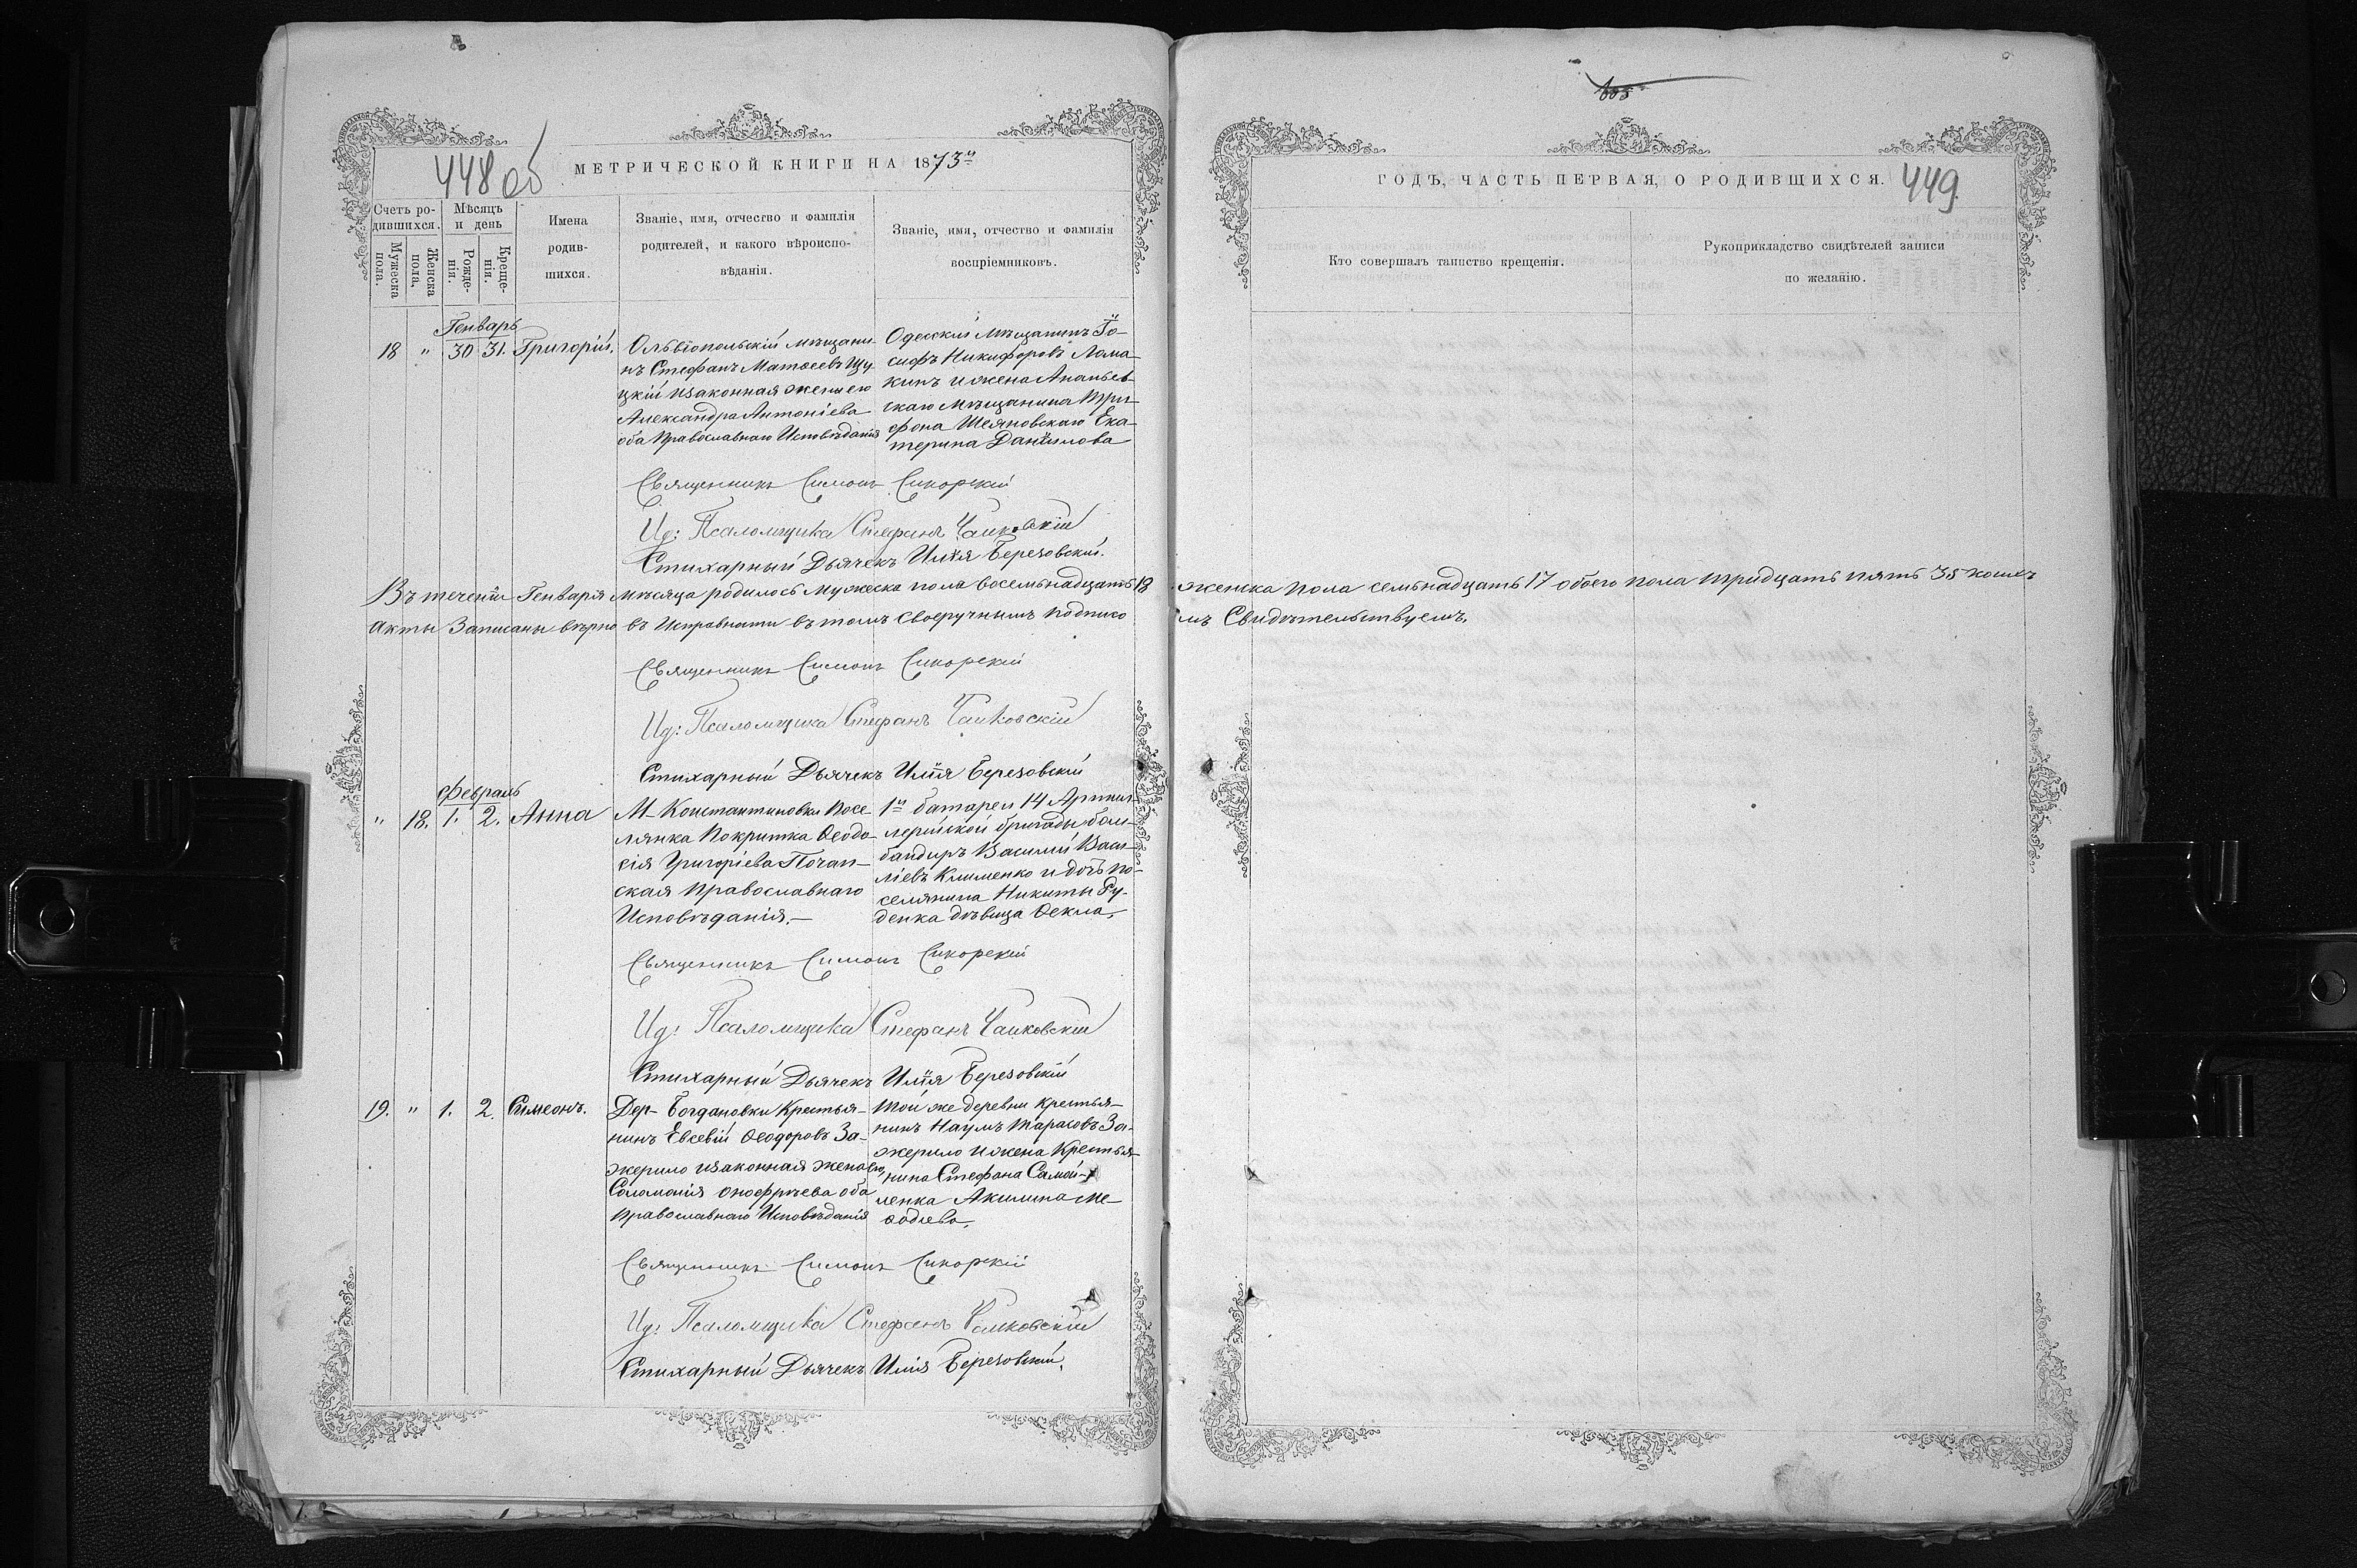 448 об
МЕТРИЧЕСКОЙ КНИГИ НА 1873й
Счетъ ро-
дившихся.
Мужеска
пола.
Женска
пола.
Мѣсяцъ
и день
Рожде-
нія.
Креще-
нія.
Имена
родив-
шихся.
Званіе, имя, отчество и фамилія
родителей, и какого вѣроиспо-
вѣданія.
Званіе, имя, отчество и фамилія
воспріемниковъ.
Генварь
18 " 30 31. Григорій.
Ольвіопольскій мѣщани-
нъ Стефанъ Матѳеевъ Щу-
цкій изаконная жена его
Александра Антоніева
оба Православнаго Исповѣданія
Одесскій Мѣщанинъ Іо-
сифъ Никифоровъ Лома-
кинъ ижена Ананьев-
скаго Мѣщанина Три-
фона Шеяновскаго Ека-
терина Даніилова
Священникъ Симонъ Сикорскій
Ид: Псаломщика Стефанъ Чайковскій
Стихарный Дьячекъ Илія Березовскій.
Въ теченіи Генваря мѣсяца родилось Мужеска пола восемьнадцать 18 женска пола семьнадцать 17 обоего пола тридцать пять 35 коихъ
акты Записаны вѣрно въ Исправности въ томъ своеручнымъ подписо мъ Свидѣтельствуемъ.
Священникъ Симонъ Сикорскій
Ид: Псаломщика Стефанъ Чайковскій
Стихарный Дьячекъ Илія Березовскій
Февраль
" 18. 1. 2. Анна
М- Константиновки Посе-
лянка Покритка Ѳеодо-
сія Григоріева Почап-
ская Православнаго
Исповѣданія.—
1й батареи 14 Артил-
лерійской бригады бом-
бандиръ Василій Васи-
ліевъ Клименко и дочь по-
селянина Никиты Ру-
денка дѣвица Ѳекла,
Священникъ Симонъ Сикорскій
Ид: Псаломщика Стефанъ Чайковскій
Стихарный Дьячекъ Илія Березовскій
19. " 1. 2. Симеонъ.
Дер- Богдановки Крестья-
нинъ Евсевій Ѳеодоровъ За-
жерило изаконная жена его
Соломонія Онофріева оба
Православнаго Исповѣданія
Той же деревни крестья-
нинъ Наумъ Тарасовъ За-
жерило ижена Крестья-
нина Стефана Самой-
ленка Акилина Ме-
ѳодіева.
Священникъ Симонъ Сикорскій
Ид: Псаломщика Стефанъ Чайковскій
Стихарный Дьячекъ Илія Березовскій.
ГОДЪ, ЧАСТЬ ПЕРВАЯ, О РОДИВШИХСЯ.
449.
Кто совершалъ таинство крещенія.
Рукоприкладство свидѣтелей записи
по желанію.